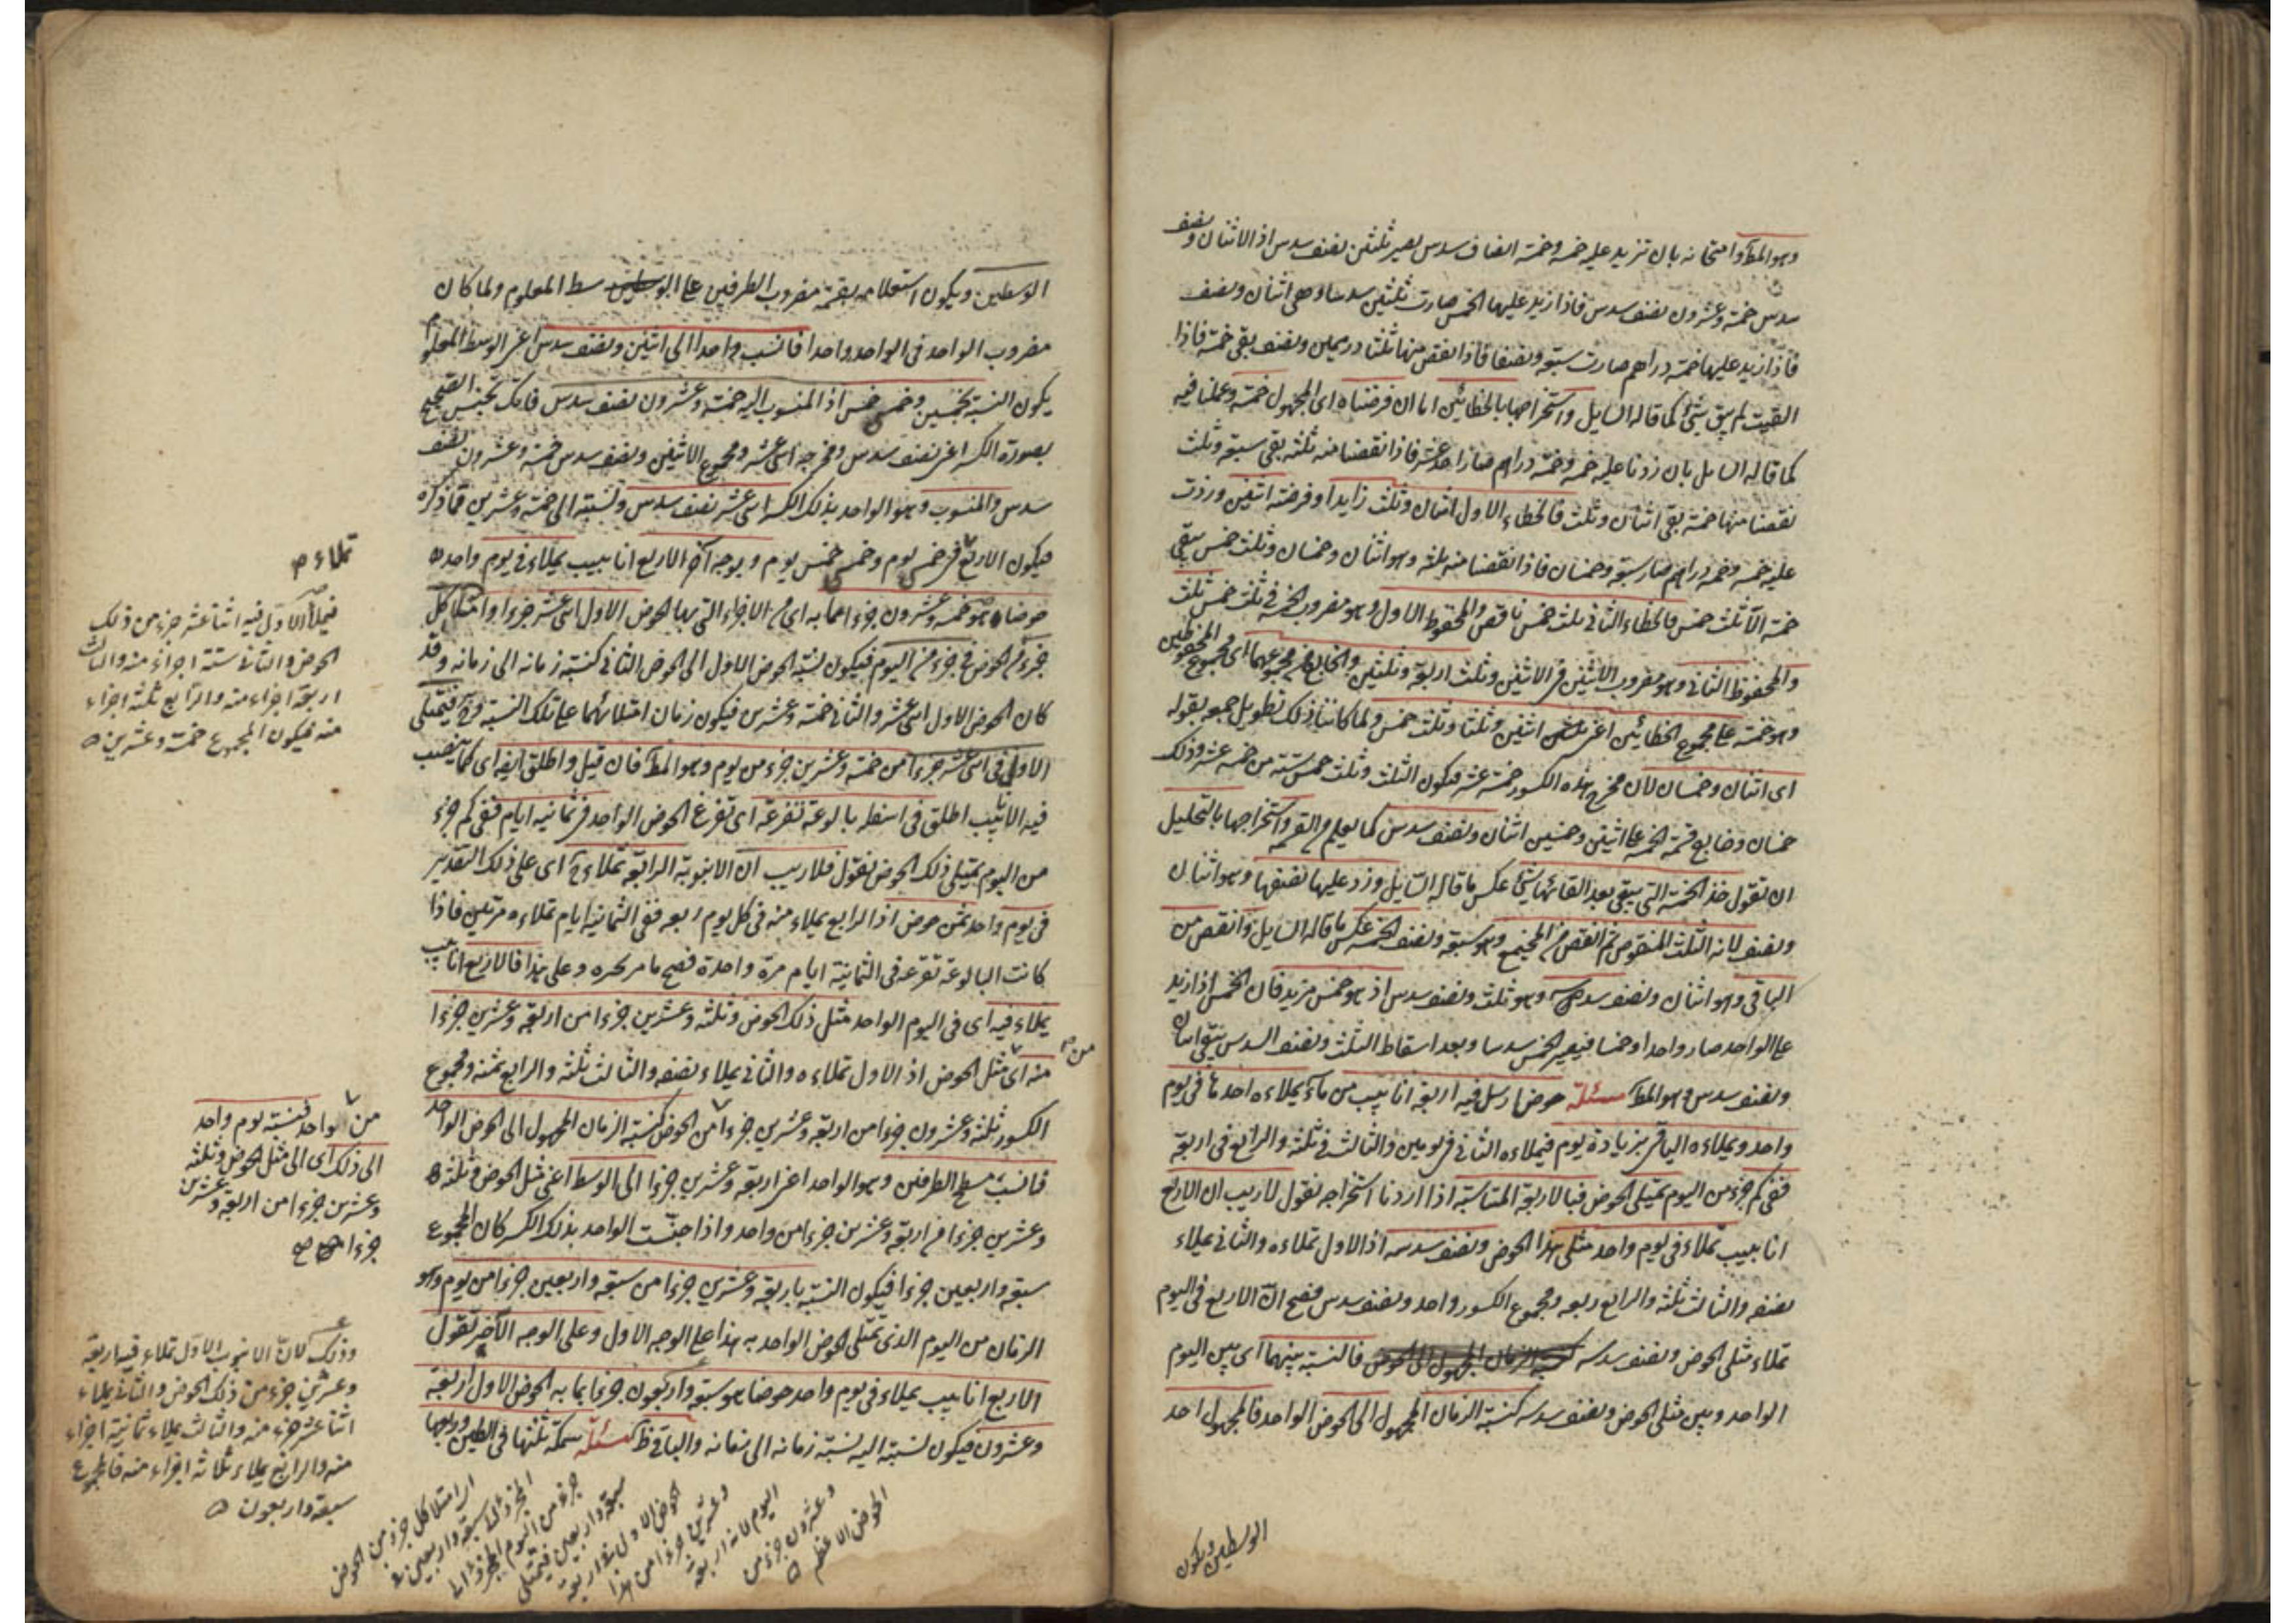 وهو المط وامتحانه بان تزيد عليه خمسه وخمسة انصاف سدس يصير ثلثين نصف سدس اذ الاثنان ونصف
سدس خمسة وعشرون نصف سدس فاذا زيد عليها الخمس صارت ثلثين سدسا وهى اثنان ونصف
فاذا زيد عليها خمسة دراهم صارت سبعة ونصفا فاذا انقص منها ثلثا درهمين ونصف بقى خمسة فاذا
القيت لم يبق شئ كما قاله السايل واستخراجها بالخطائين اما ان فرضناه اى المجهول خمسة وعملنا فيه
كما قاله السايل بان زدنا عليه خمسه وخمسة دراهم صارا احد عشر فاذا نقصنا منه ثلثه بقى سبعة وثلث
نقصنا منها خمسة بقى اثنان وثلث فالخطاء الاول اثنان وثلث زايدا وفرضته اثنين وزدت
عليه خمسه وخمسه دراهم صار سبعة وخمسان فاذا نقصنا منه ثلثه وهو اثنان وخمسان وثلث خمس يبقى
خمسة الا ثلث خمس فالخطاء الثانى ثلث خمس ناقص والمحفوظ الاول وهو مضروب الخمسة فى ثلث خمس ثلث
والمحفوظ الثانى وهو مضروب الاثنين فى الاثنين وثلث اربعة وثلثين والخارج من مجموعهما اى مجموع المحفوظين
وهو خمسة على مجموع الخطائين اعنى اثنين وثلثا وثلث خمس ولما كان ذلك تطويل جمعه بقوله
اى اثنان وخمسان لان مخرج هذه الكسور خمسة عشر فيكون الثلث وثلث خمس ستة من خمسة عشر وذلك
خمسان وخارج قسمة الخمسة على اثنين وخمسين اثنان ونصف سدس كما يعلم من القسمة واستخراجها بالتحليل
ان تقول خذ الخمسة التى يبقى بعد القائها شئ عكس ما قاله السايل وزد عليها نصفها وهو اثنان
ونصف لانه الثلث المنقوص ثم انقص من المجتمع وهو سبعة ونصف الخمسة عكس ما قاله السايل وانقص من
الباقى وهو اثنان ونصف سدسه وهو ثلث ونصف سدس اذ هو خمس مزيد فان الخمس اذا زيد
على الواحد صار واحدا وخمسا فيصير الخمس سدسا وبعد اسقاط الثلث ونصف السدس يبقى اثنان
ونصف سدس وهو المط مسئلة حوض ارسل فيه اربعة انابيب من ماء يملاءه احدها فى يوم
واحد ويملاءه الباقى بزيادة يوم فيملاءه الثانى فى يومين والثالث فى ثلثة والرابع فى اربعة
ففى كم جزء من اليوم يمتلى الحوض فبالاربعة المتناسبة اذا اردنا استخراجه نقول لاريب ان الاربع
انابيب تملاء فى يوم واحد مثلى هذا الحوض ونصف سدسه اذ الاول تملاءه والثانى يملاء
نصفه والثالث ثلثه والرابع ربعه ومجموع الكسور واحد ونصف سدس فصح ان الاربع فى اليوم
تملاء مثلى الحوض ونصف سدسه فالنسبة بينهما اى بين اليوم
الواحد وبين مثلى الحوض ونصف سدسه كنسبة الزمان المجهول الى الحوض الواحد فالمجهول احد
الوسطين ويكون
الوسطين ويكون استعلامه بقسمة مضروب الطرفين على الوسط المعلوم ولما كان
مضروب الواحد فى الواحد واحدا فانسب واحدا الى اثنين ونصف سدس اعنى الوسط المعلوم
يكون النسبة بخمسين وخمس خمس اذ المنسوب اليه خمسة وعشرون نصف سدس فانك تجنس الصحيح
بصورة الكسر اعنى نصف سدس ومخرجه اثنى عشر ومجموع الاثنين ونصف سدس خمسة وعشرون نصف
سدس والمنسوب وهو الواحد بذلك الكسر اثنى عشر نصف سدس ونسبته الى خمسة وعشرين فما ذكره
فيكون الاربع فى خمسى يوم وخمس خمس يوم وبوجه آخر الاربع انابيب يملاء فى يوم واحد
حوضا هو خمسة وعشرون جزءا مما به اى من الاجزاء التى بها الحوض الاول اثنى عشر جزءا وامتلا كل
جزء من الحوض فى جزء من اليوم فيكون نسبة الحوض الاول الى الحوض الثانى كنسبة زمانه الى زمانه وقد
كان الحوض الاول اثنى عشر والثانى خمسة وعشرين فيكون زمان امتلائهما على تلك النسبة وح فيمتلى
الاول فى اثنى عشر جزءا من خمسة وعشرين جزء من يوم وهو المط فان قيل واطلق ايضا اى كما يصب
فيه الانابيب اطلق فى اسفله بالوعة تفرغه اى تفرغ الحوض الواحد فى ثمانيه ايام ففى كم جزء
من اليوم يمتلى ذلك الحوض نقول فلاريب ان الانبوبة الرابعة تملاء ح اى على ذلك التقدير
فى يوم واحد ثمن حوض اذ الرابع يملاء منه فى كل يوم ربعه ففى الثمانية ايام تملاءه مرتين فاذا
كانت البالوعة تفرغه فى الثمانية ايام مرة واحدة فصح ما مر ذكره وعلى هذا فالاربع انابيب
يملاء فيه اى فى اليوم الواحد مثل ذلك الحوض وثلثه وعشرين جزءا من اربعة وعشرين جزءا
منه اى من مثل الحوض اذ الاول تملاءه والثانى يملاء نصفه والثالث ثلثه والرابع ثمنه ومجموع
الكسور ثلثة وعشرون جزءا من اربعة وعشرين جزءا من الحوض كنسبة الزمان المجهول الى الحوض الواحد
فانسب مسطح الطرفين وهو الواحد اعنى اربعة وعشرين جزءا الى الوسط اعنى مثل الحوض وثلثة
وعشرين جزءا من اربعة وعشرين جزءا من واحد واذا جنست الواحد بذلك الكسر كان المجموع
سبعة واربعين جزءا فيكون النسبة باربعة وعشرين جزءا من سبعة واربعين جزءا من يوم وهو
الزمان من اليوم الذى تمتلى الحوض الواحد به هذا على الوجه الاول وعلى الوجه الآخر نقول
الاربع انابيب يملاء فى يوم واحد حوضا هو سبعة واربعون جزءا بما به الحوض الاول اربعة
وعشرون فيكون نسبته اليه نسبة زمانه الى زمانه والباقى ظ مسئلة سمكة ثلثها فى الطين وربعها
تملاء
فيملاء الاول فيه اثنا عشر جزء من ذلك
الحوض والثانى ستة اجزاء منه والثالث
اربعة اجزاء منه والرابع ثلثة اجزاء
منه فيكون المجموع خمسة وعشرين
من واحد فنسبة يوم واحد
الى ذلك اى الى مثل الحوض وثلثه
وعشرين جزءا من اربعة وعشرين
جزءا
وذلك لان الانبوب الاول تملاء فيه اربعة
وعشرين جزء من ذلك الحوض والثانى يملاء
اثنا عشر جزء منه والثالث يملاء ثمانية اجزاء
منه والرابع يملاء ثلاثة اجزاء منه فالمجموع
سبعة واربعون
امتلا كل جزء من الحوض
سبعة واربعين
جزء من اليوم
سبعة واربعين فيمتلى
الحوض الاول اربعة
وعشرين جزءا من هذا
اليوم لانه اربعة
وعشرون جزء من
الحوض الاعظم